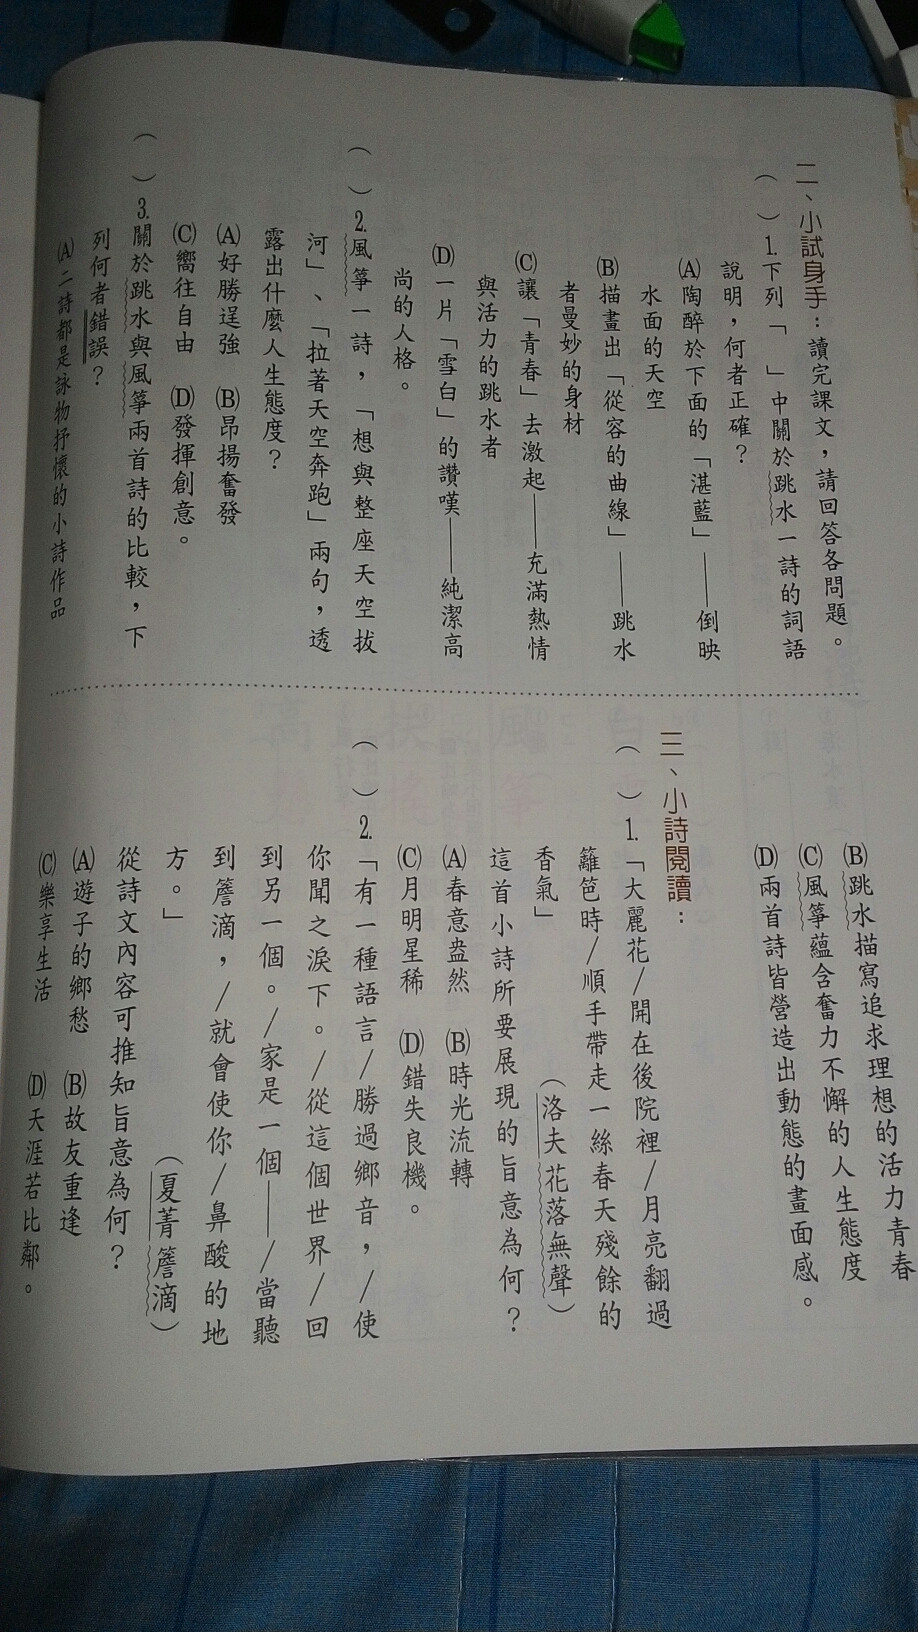 二、小試身手：讀完課文，請回答各問題。
（　）1.下列「　」中關於跳水一詩的詞語
說明，何者正確？
(A)陶醉於下面的「湛藍」——倒映
水面的天空
(B)描畫出「從容的曲線」——跳水
者曼妙的身材
(C)讓「青春」去激起——充滿熱情
與活力的跳水者
(D)一片「雪白」的讚嘆——純潔高
尚的人格。
（　）2.風箏一詩，「想與整座天空拔
河」、「拉著天空奔跑」兩句，透
露出什麼人生態度？
(A)好勝逞強　(B)昂揚奮發
(C)嚮往自由　(D)發揮創意。
（　）3.關於跳水與風箏兩首詩的比較，下
列何者錯誤？
(A)二詩都是詠物抒懷的小詩作品
(B)跳水描寫追求理想的活力青春
(C)風箏蘊含奮力不懈的人生態度
(D)兩首詩皆營造出動態的畫面感。
三、小詩閱讀：
（　）1.「大麗花/開在後院裡/月亮翻過
籬笆時/順手帶走一絲春天殘餘的
香氣」　（洛夫花落無聲）
這首小詩所要展現的旨意為何？
(A)春意盎然　(B)時光流轉
(C)月明星稀　(D)錯失良機。
（　）2.「有一種語言/勝過鄉音，/使
你聞之淚下。/從這個世界/回
到另一個。/家是一個——/當聽
到簷滴，/就會使你/鼻酸的地
方。」　（夏菁簷滴）
從詩文內容可推知旨意為何？
(A)遊子的鄉愁　(B)故友重逢
(C)樂享生活　(D)天涯若比鄰。